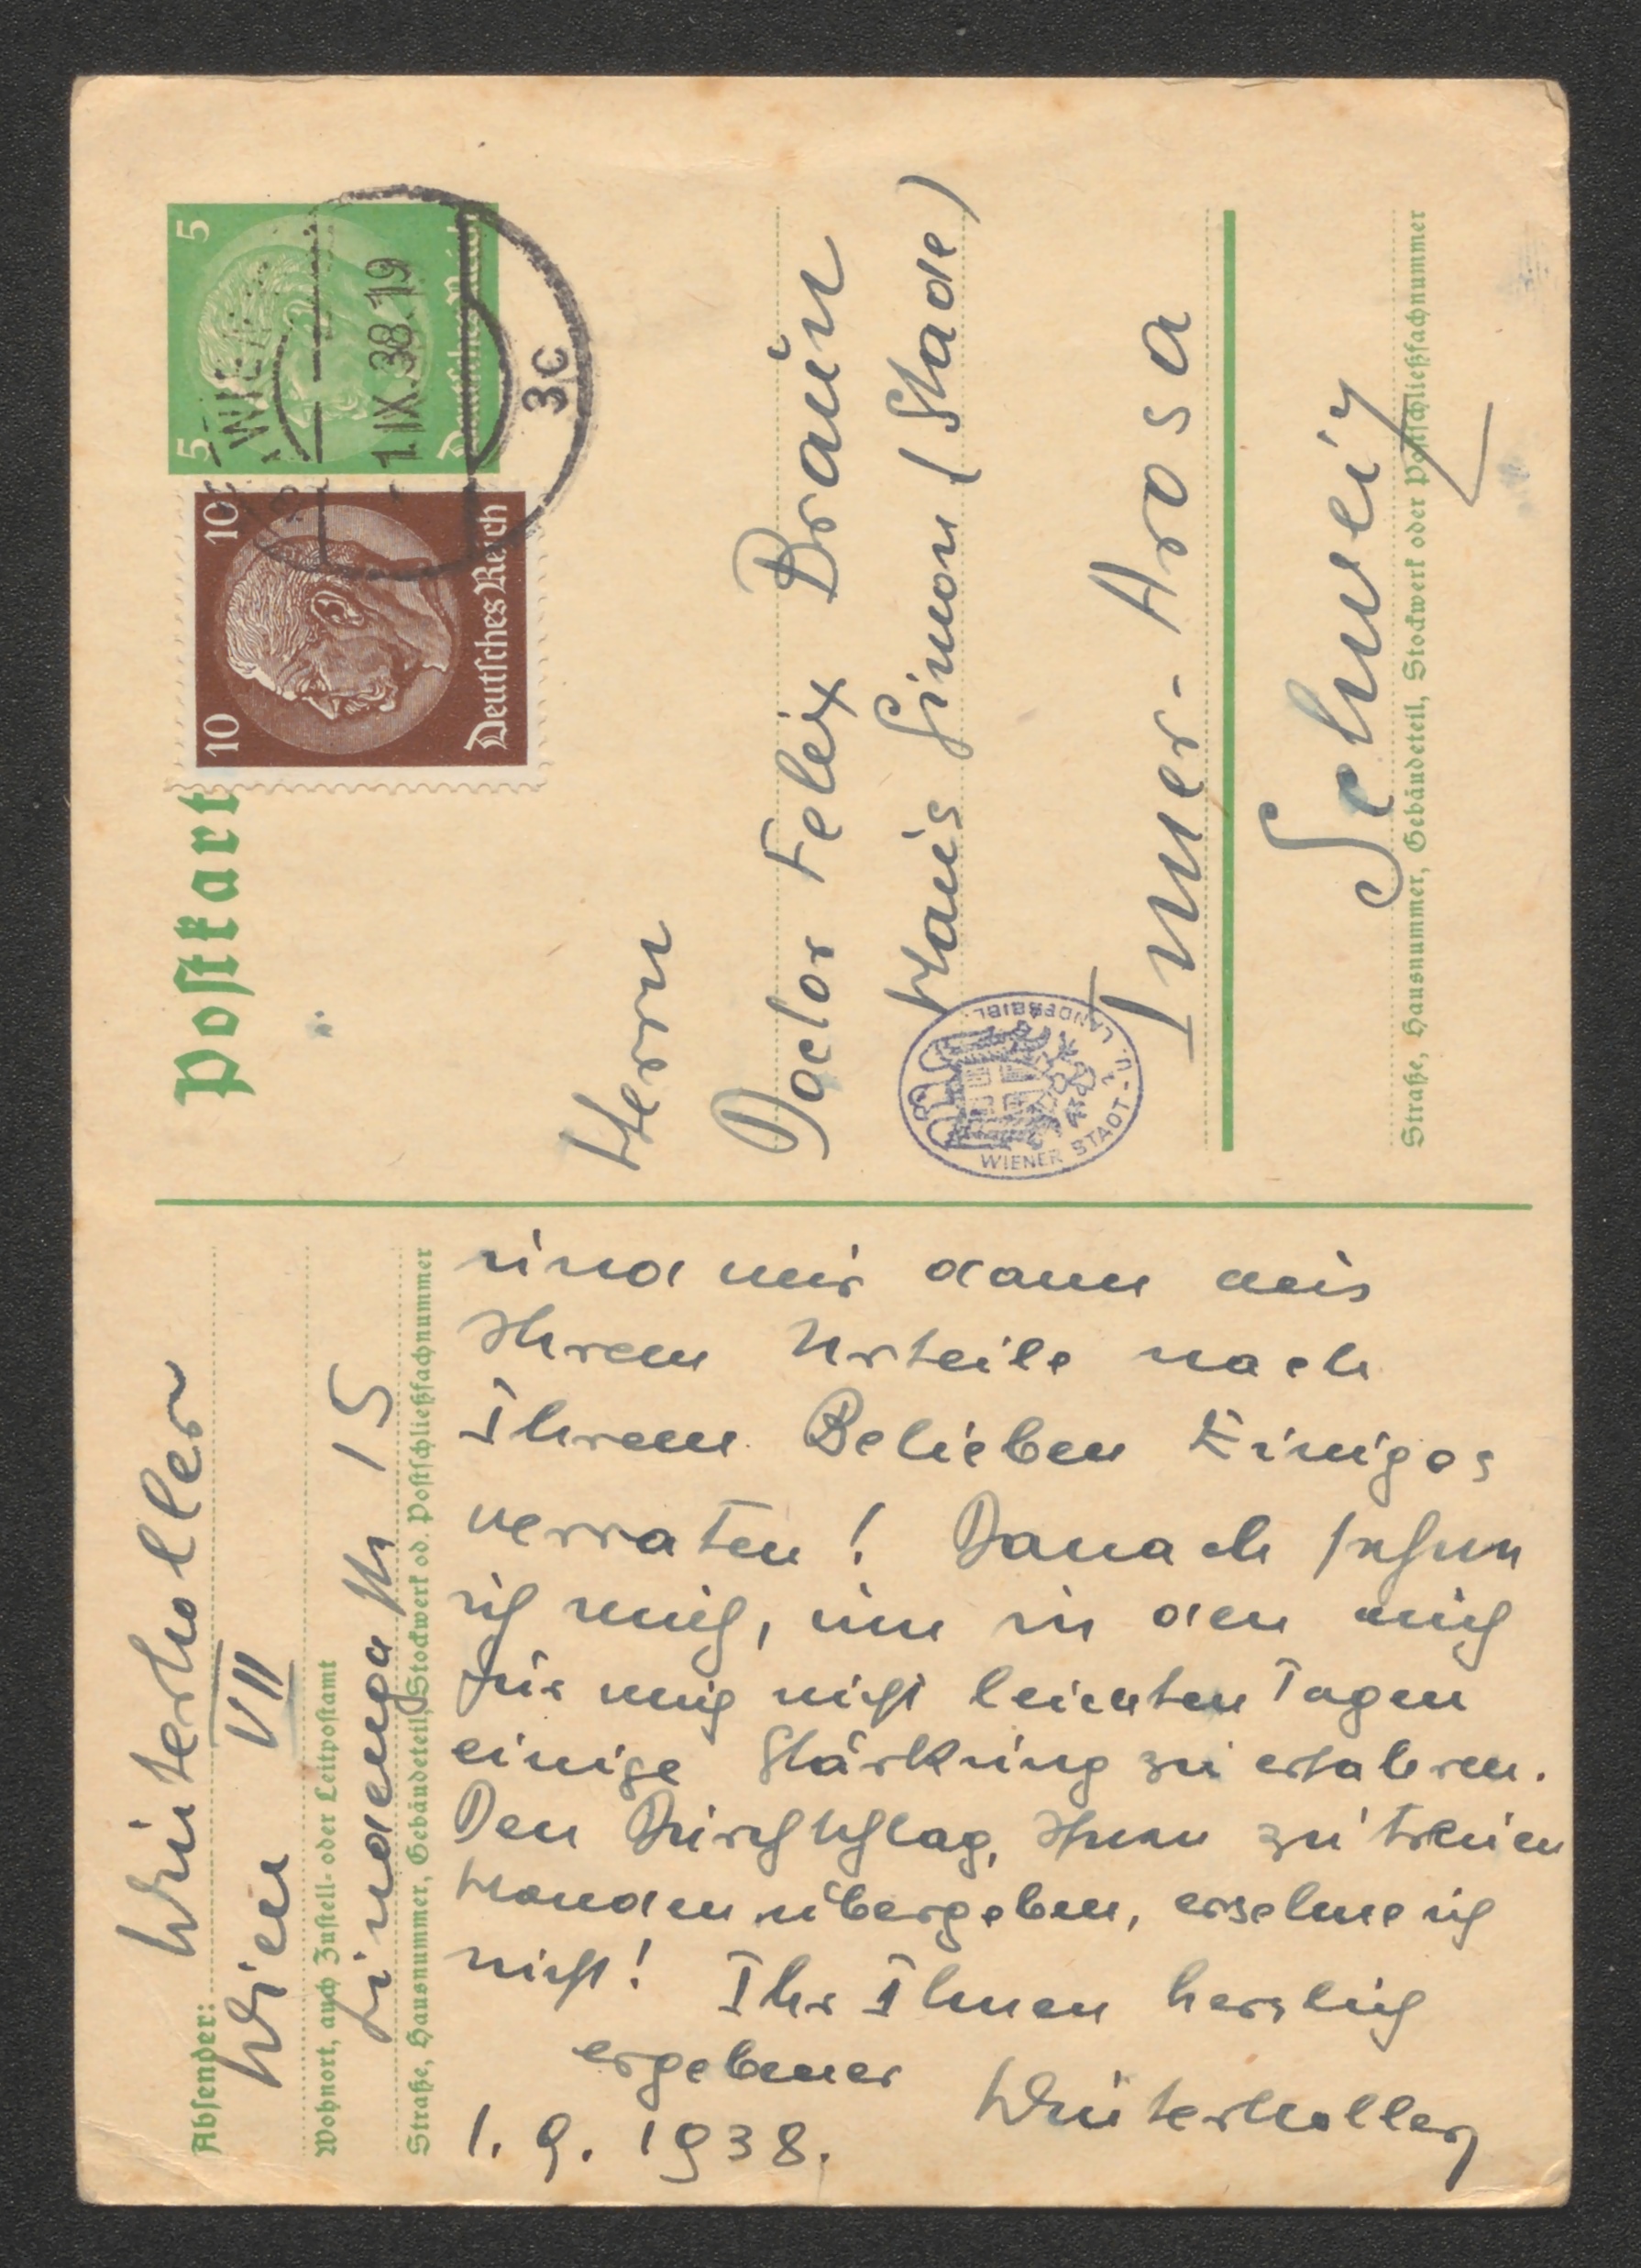 Postkart
5 5
Deutsches Reich
10 10
Deutsches Reich
WIEN
-1.IX.38.19
3c
Herrn
Doctor Felix Braun
Haus Simon (Stade)
Inner-Arosa
Schweiz
Straße, Hausnummer, Gebäudeteil, Stockwerk oder Postschließfachnummer
WIENER STADT- U. LANDESBIBL.
Absender: Winterholler
Wien VII
Wohnort, auch Zustell- oder Leitpostamt
Lindengasse 15
Straße, Hausnummer, Gebäudeteil, Stockwerk od. Postschließfachnummer
und mir dann aus
Ihrem Urteile nach
Ihrem Belieben Einiges
verraten! Danach sehne
ich mich, um in den auch
für mich nicht leichten Tagen
einige Stärkung zu erfahren.
Den Durchschlag, Ihnen zu treuen
Handen übergeben, ersehne ich
nicht! Ihr Ihnen herzlich
ergebener Winterholler
1.9.1938.